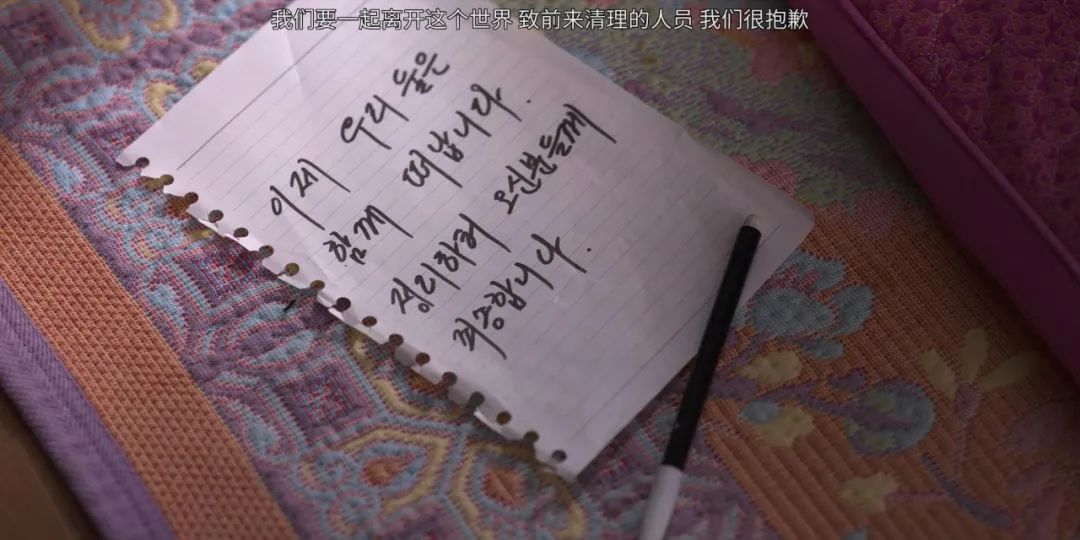 我们要一起离开这个世界 致前来清理的人员 我们很抱歉
이제 우리 둘은
함께 떠납니다.
정리하러 오신분들께
죄송합니다.